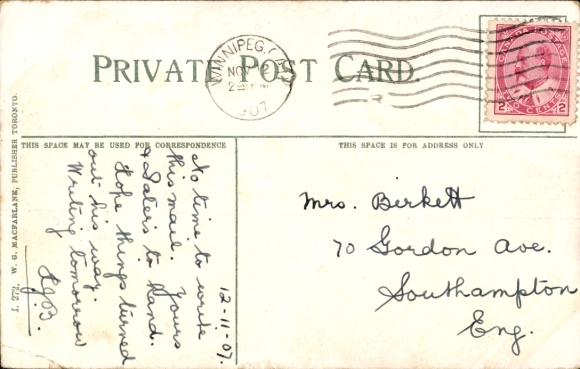 PRIVATE POST CARD.
WINNIPEG, CAN.
NO
2
1907
CANADA POSTAGE
2 2
TWO CENTS
THIS SPACE MAY BE USED FOR CORRESPONDENCE
THIS SPACE IS FOR ADDRESS ONLY
I. 272. W. G. MACFARLANE, PUBLISHER TORONTO.
12-11-07.
No time to write
this mail. Yours
& Pater's to hand.
Hope things turned
out his way.
Writing tomorrow
Mrs. Birkett
70 Gordon Ave.
Southampton
Eng.